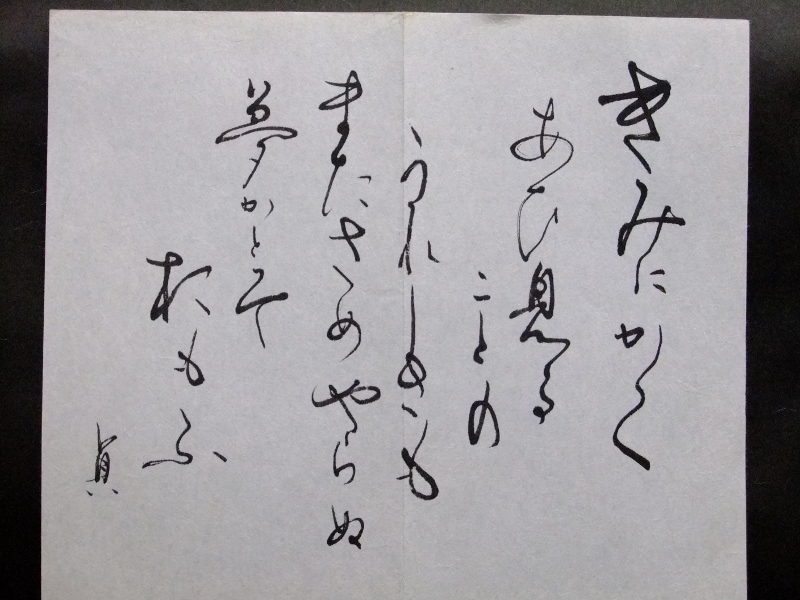 きみにかく
あひ見る
ことの
うれしさも
まださめやらぬ
夢かとぞ
おもふ
貞